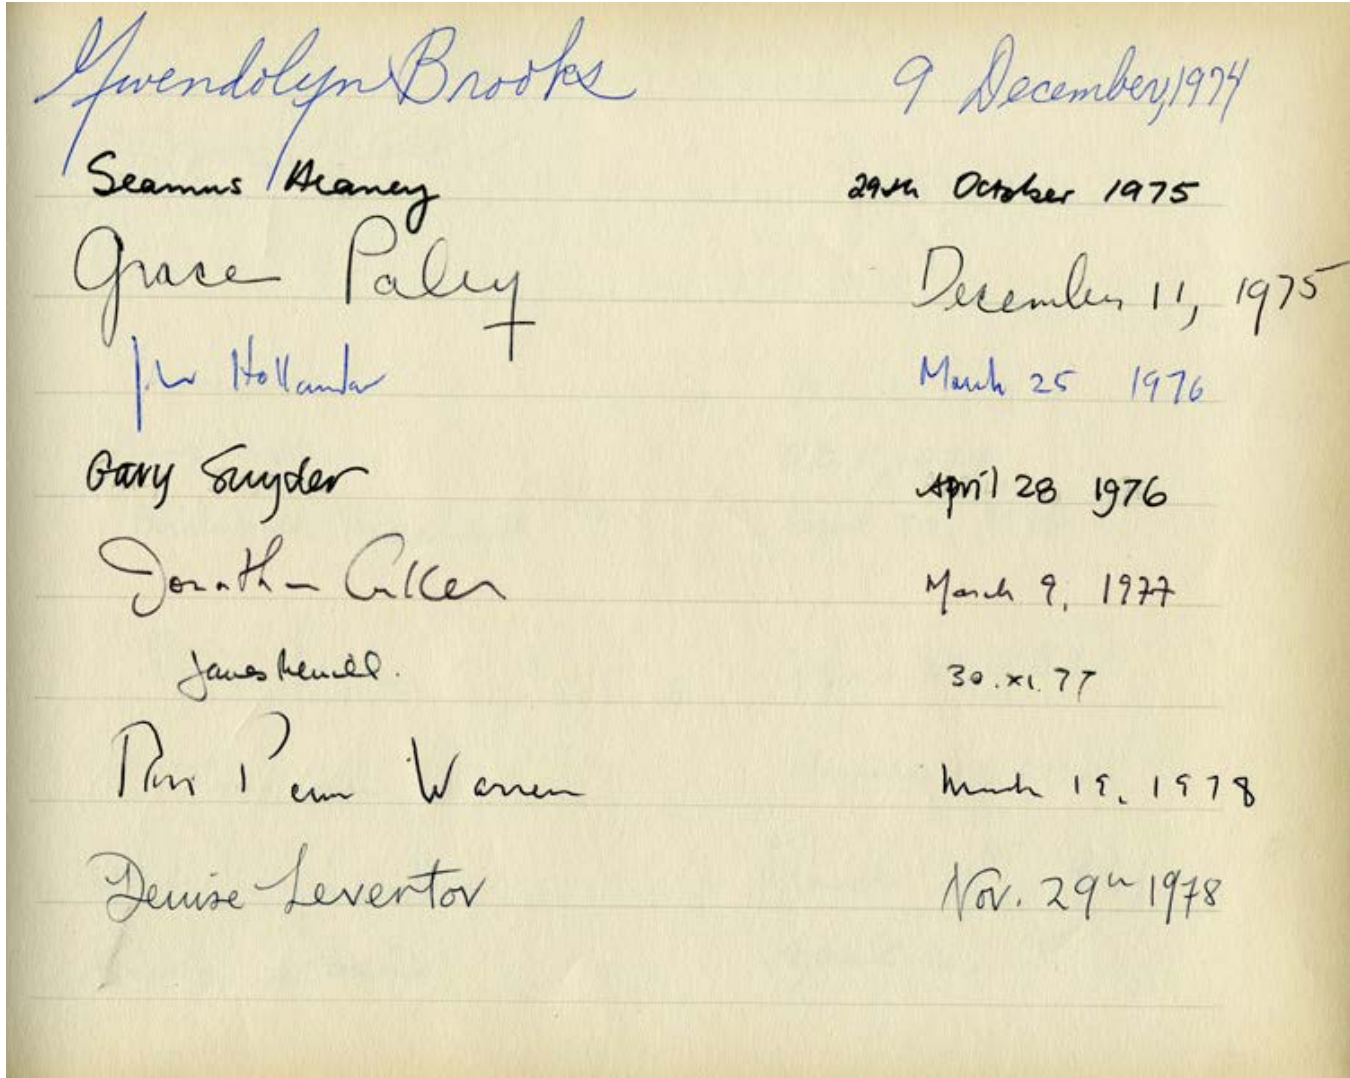 Gwendolyn Brooks 9 December, 1974
Seamus Heaney 29th October 1975
Grace Paley December 11, 1975
John Hollander March 25 1976
Gary Snyder April 28 1976
Jonathan Culler March 9, 1977
James Merrill. 30.xi.77
Robert Penn Warren March 19, 1978
Denise Levertov Nov. 29th 1978